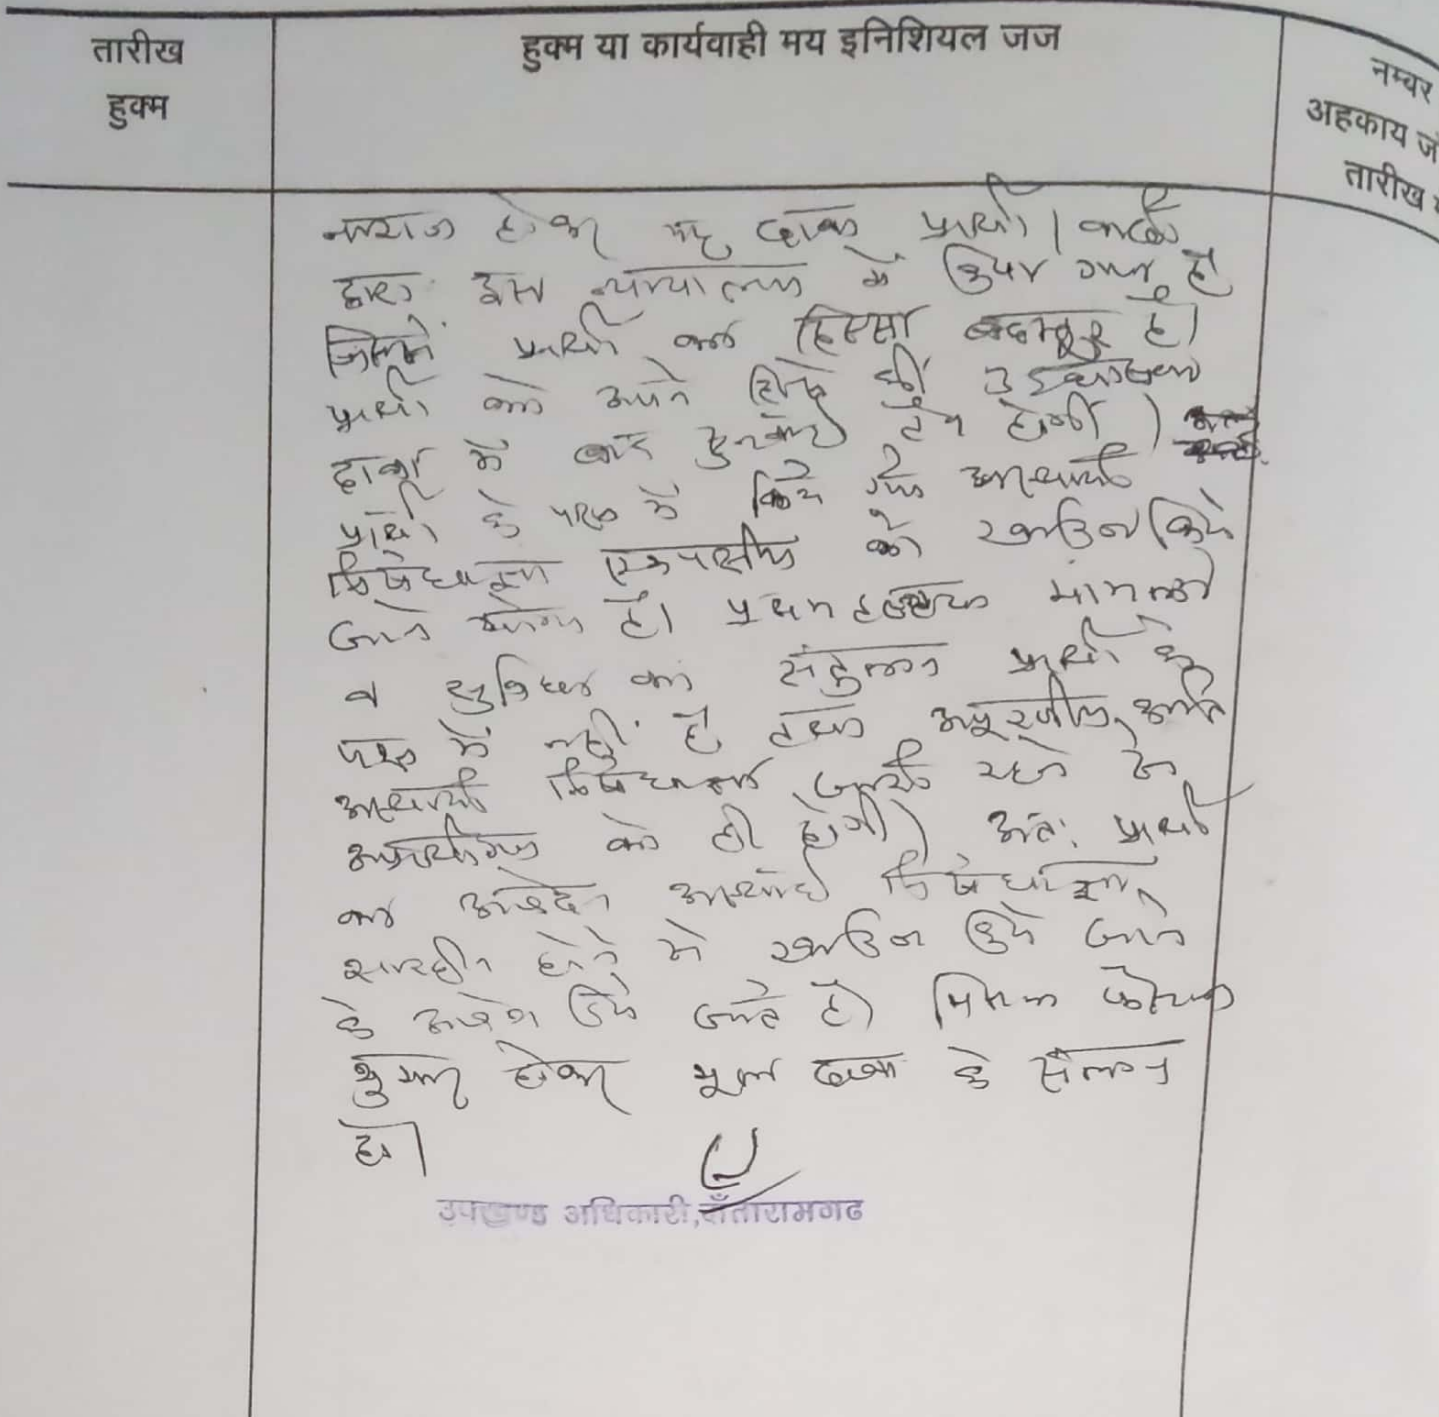 तारीख
हुक्म
हुक्म या कार्यवाही मय इनिशियल जज
नम्बर
अहकाय
तारीख
नाराज होकर यह दावा प्रार्थी / वादी
द्वारा इस न्यायालय में किया गया है
जिसमें प्रार्थी का हिस्सा बदस्तूर है।
प्रार्थी को अपने हिस्से की उद्घोषणा
दावा में बाद होगी।
प्रार्थी के पक्ष में किये गये अस्थायी
निषेधाज्ञा एकपक्षीय को खारिज किये
जाने योग्य है। प्रथम दृष्टया मामला
व सुविधा का संतुलन प्रार्थी के
पक्ष में नहीं है तथा अपूरणीय क्षति
अस्थायी निषेधाज्ञा जारी रहने से
अप्रार्थीगण को ही होगी। अतः प्रार्थी
का आवेदन अस्थाई निषेधाज्ञा
सारहीन होने से खारिज किये जाने
के आदेश दिये जाते है। मिसल फैसल
शुमार होकर मूल दावा के संलग्न
हो।
उपखण्ड अधिकारी, दाँतारामगढ